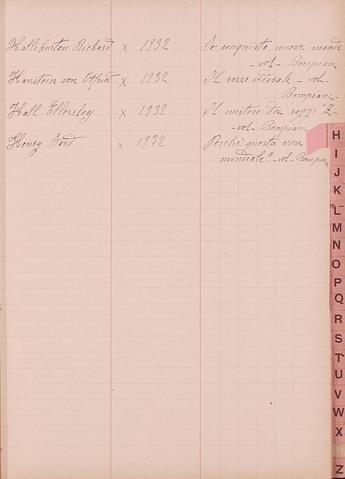 Halliburton Richard x 1932 Io conquisto nuovi mondi
- vol - Bompiani
Hanstein von Otfrid x 1932 Il - vol -
Bompiani
Hall Ellersley x 1932 Il mistero dei raggi "Z"
- vol - Bompiani
Henry Ford x 1932 Perchè questa crisi
mondiale? - vol - Bompiani
H
I
J
K
L
M
N
O
P
Q
R
S
T
U
V
W
X
Z